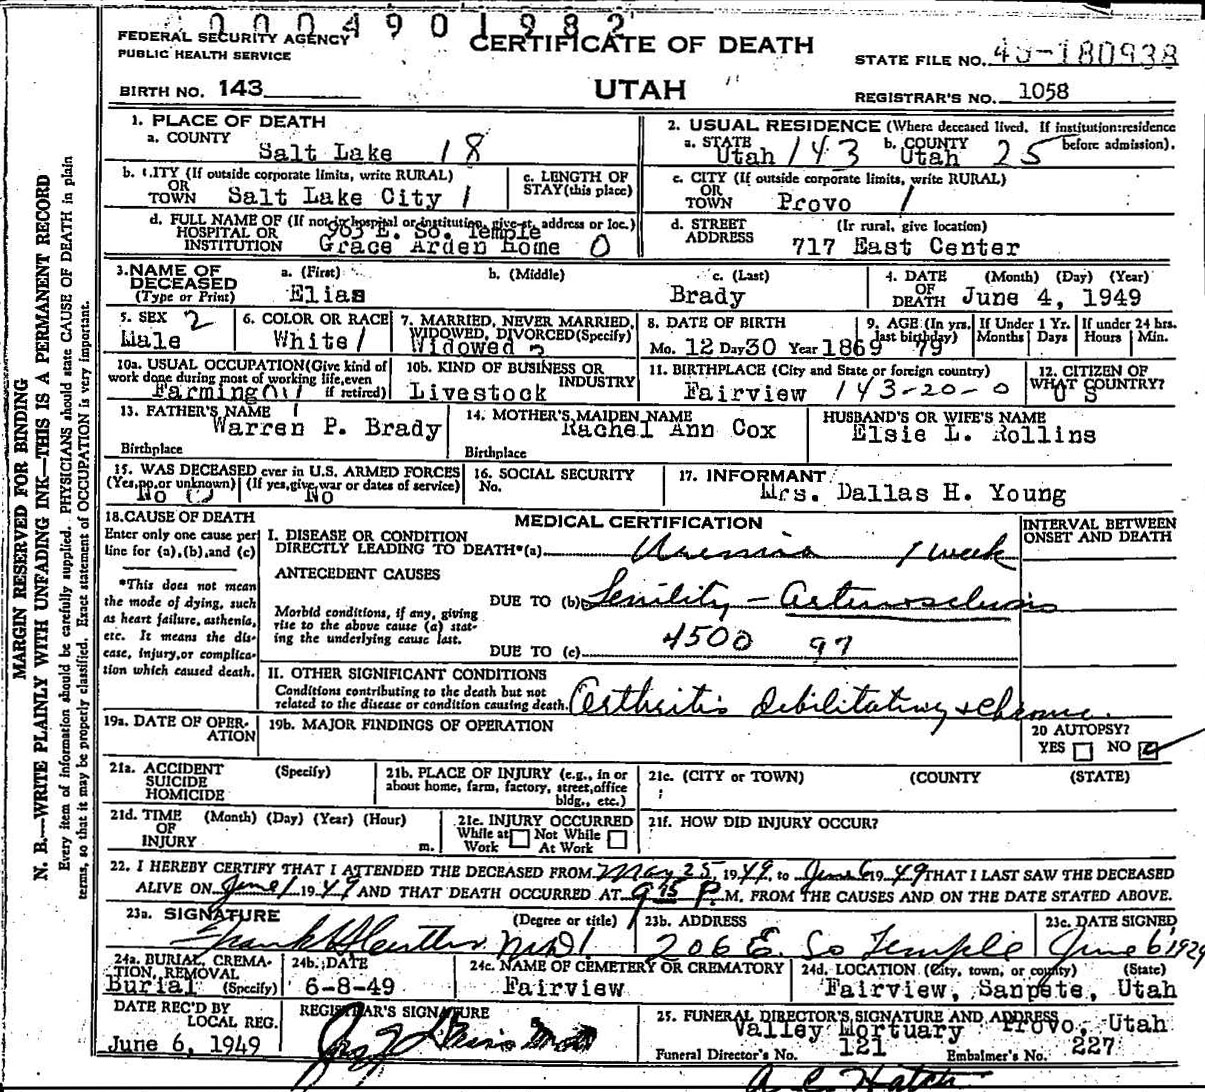 0004901982
FEDERAL SECURITY AGENCY
PUBLIC HEALTH SERVICE
CERTIFICATE OF DEATH
STATE FILE NO. 49-180938
BIRTH NO. 143
UTAH
REGISTRAR'S NO. 1058
1. PLACE OF DEATH
a. COUNTY
Salt Lake 18
2. USUAL RESIDENCE (Where deceased lived. If institution: residence before admission).
a. STATE Utah 143 b. COUNTY Utah 25
b. CITY (If outside corporate limits, write RURAL)
OR
TOWN Salt Lake City 1
c. LENGTH OF
STAY (this place)
c. CITY (If outside corporate limits, write RURAL)
OR
TOWN Provo 1
d. FULL NAME OF (If not in hospital or institution, give st. address or loc.)
HOSPITAL OR
INSTITUTION
963 E. So. Temple
Grace Arden Home 0
d. STREET
ADDRESS
(If rural, give location)
717 East Center
3. NAME OF
DECEASED
(Type or Print)
a. (First)
Elias
b. (Middle)
c. (Last)
Brady
4. DATE
OF
DEATH
(Month) (Day) (Year)
June 4, 1949
5. SEX 2
Male
6. COLOR OR RACE
White 1
7. MARRIED, NEVER MARRIED,
WIDOWED, DIVORCED (Specify)
Widowed 3
8. DATE OF BIRTH
Mo. 12 Day 30 Year 1869
9. AGE (In yrs.
last birthday)
79
If Under 1 Yr.
Months Days
If under 24 hrs.
Hours Min.
10a. USUAL OCCUPATION (Give kind of
work done during most of working life, even
if retired)
Farming
10b. KIND OF BUSINESS OR
INDUSTRY
Livestock
11. BIRTHPLACE (City and State or foreign country)
Fairview 143-20-0
12. CITIZEN OF
WHAT COUNTRY?
U S
13. FATHER'S NAME
Warren P. Brady
Birthplace
14. MOTHER'S MAIDEN NAME
Rachel Ann Cox
Birthplace
HUSBAND'S OR WIFE'S NAME
Elsie L. Rollins
15. WAS DECEASED ever in U.S. ARMED FORCES
(Yes, no, or unknown) (If yes, give war or dates of service)
No No
16. SOCIAL SECURITY
No.
17. INFORMANT
Mrs. Dallas H. Young
18. CAUSE OF DEATH
Enter only one cause per
line for (a), (b), and (c)
*This does not mean
the mode of dying, such
as heart failure, asthenia,
etc. It means the dis-
ease, injury, or complica-
tion which caused death.
MEDICAL CERTIFICATION
INTERVAL BETWEEN
ONSET AND DEATH
I. DISEASE OR CONDITION
DIRECTLY LEADING TO DEATH*(a) Uremia 1 week
ANTECEDENT CAUSES
Morbid conditions, if any, giving
rise to the above cause (a) stat-
ing the underlying cause last.
DUE TO (b) Senility - Arteriosclerosis
4500 97
DUE TO (c)
II. OTHER SIGNIFICANT CONDITIONS
Conditions contributing to the death but not
related to the disease or condition causing death.
Arthritis debilitating & chronic.
19a. DATE OF OPER-
ATION
19b. MAJOR FINDINGS OF OPERATION
20 AUTOPSY?
YES NO
21a. ACCIDENT
SUICIDE
HOMICIDE
(Specify)
21b. PLACE OF INJURY (e.g., in or
about home, farm, factory, street, office
bldg., etc.)
21c. (CITY or TOWN) (COUNTY) (STATE)
21d. TIME
OF
INJURY
(Month) (Day) (Year) (Hour)
m.
21e. INJURY OCCURRED
While at
Work
Not While
At Work
21f. HOW DID INJURY OCCUR?
22. I HEREBY CERTIFY THAT I ATTENDED THE DECEASED FROM May 25, 1949, to June 6 1949 THAT I LAST SAW THE DECEASED
ALIVE ON June 1 1949 AND THAT DEATH OCCURRED AT 9 15 P. M. FROM THE CAUSES AND ON THE DATE STATED ABOVE.
23a. SIGNATURE
(Degree or title)
M.D.
23b. ADDRESS
206 E. So Temple
23c. DATE SIGNED
June 6 1949
24a. BURIAL, CREMA-
TION, REMOVAL
(Specify)
Burial
24b. DATE
6-8-49
24c. NAME OF CEMETERY OR CREMATORY
Fairview
24d. LOCATION (City, town, or county) (State)
Fairview, Sanpete, Utah
DATE REC'D BY
LOCAL REG.
June 6, 1949
REGISTRAR'S SIGNATURE
25. FUNERAL DIRECTOR'S SIGNATURE AND ADDRESS
Valley Mortuary Provo, Utah
Funeral Director's No. 121 Embalmer's No. 227
A C Hatch
MARGIN RESERVED FOR BINDING
N. B.—WRITE PLAINLY WITH UNFADING INK—THIS IS A PERMANENT RECORD
Every item of information should be carefully supplied. PHYSICIANS should state CAUSE OF DEATH in plain
terms, so that it may be properly classified. Exact statement of OCCUPATION is very important.